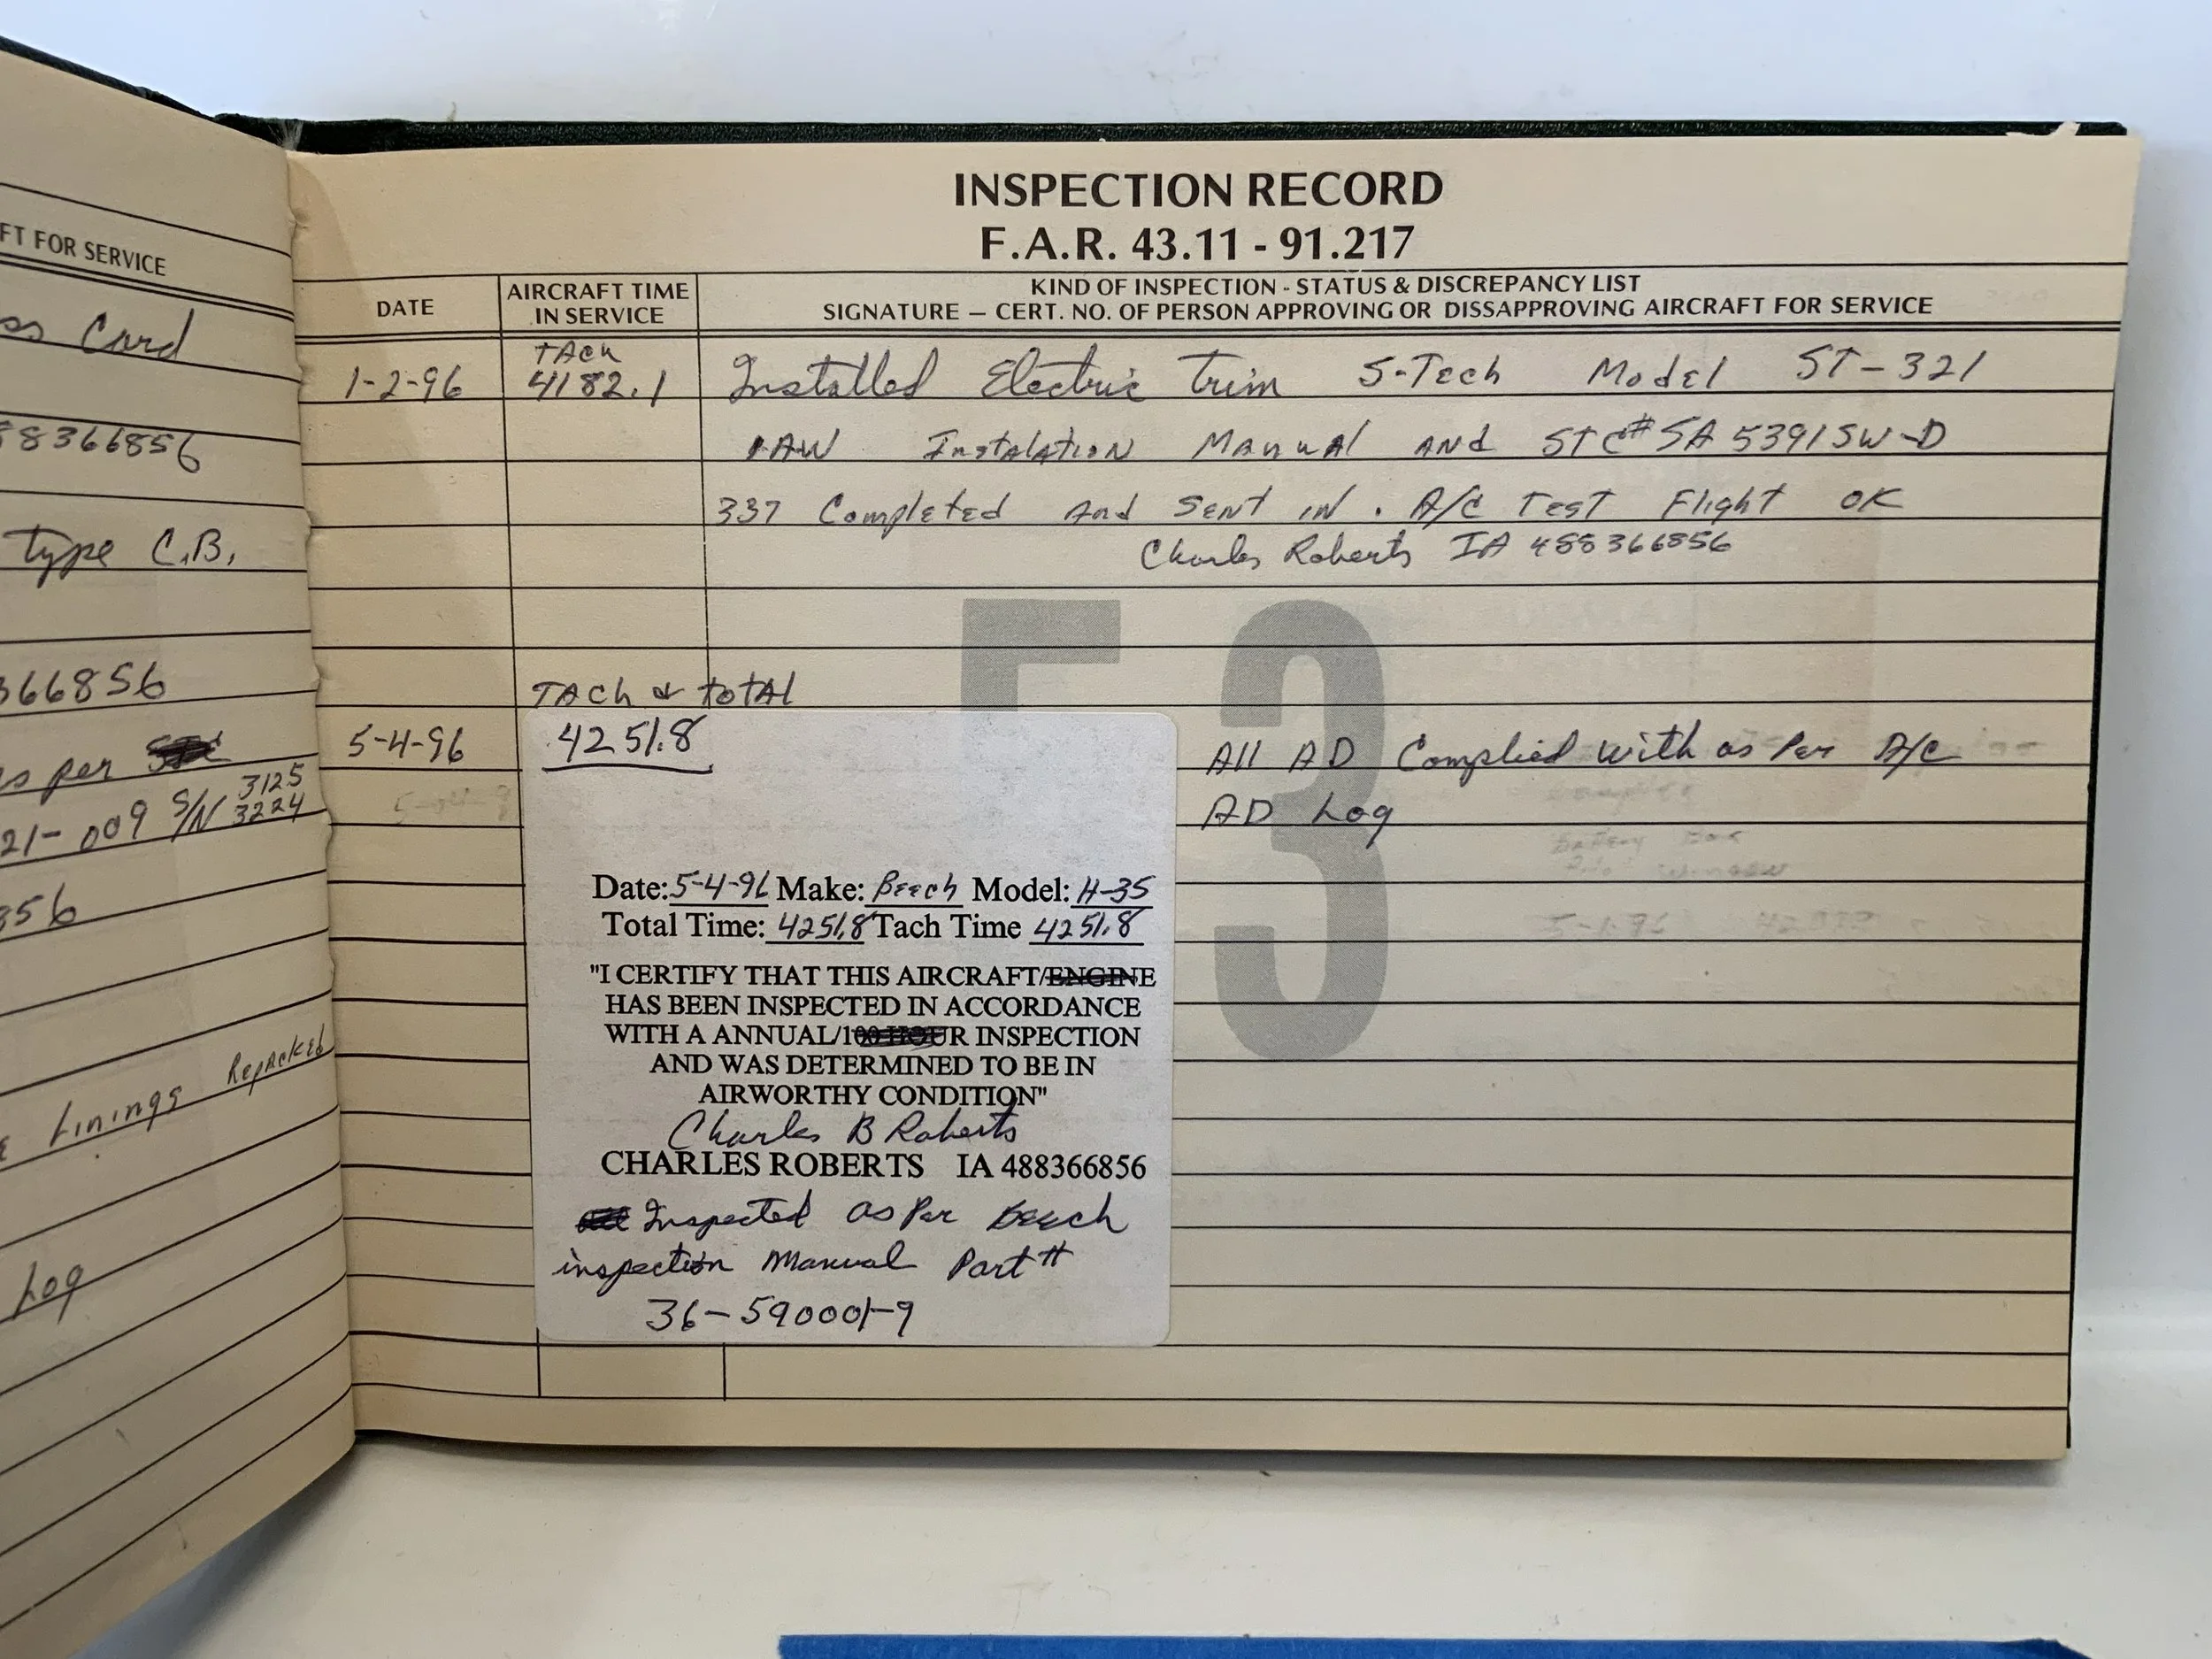 FT FOR SERVICE
ss Card
88366856
type C.B.
366856
as per
3125
21-009 S/N 3224
356
Linings Repacked
Log
INSPECTION RECORD
F.A.R. 43.11 - 91.217
DATE
AIRCRAFT TIME
IN SERVICE
KIND OF INSPECTION - STATUS & DISCREPANCY LIST
SIGNATURE — CERT. NO. OF PERSON APPROVING OR DISSAPPROVING AIRCRAFT FOR SERVICE
TACH
1-2-96 4182.1 Installed Electric Trim S-Tech Model ST-321
IAW Instalation Manual and STC# SA5391SW-D
337 Completed and Sent in. A/C Test Flight OK
Charles Roberts IA 488366856
53
TACh & total
5-4-96 4251.8 All AD Complied with as Per A/C
AD Log
Date: 5-4-96 Make: Beech Model: H-35
Total Time: 4251.8 Tach Time 4251.8
"I CERTIFY THAT THIS AIRCRAFT/ENGINE
HAS BEEN INSPECTED IN ACCORDANCE
WITH A ANNUAL/100 HOUR INSPECTION
AND WAS DETERMINED TO BE IN
AIRWORTHY CONDITION"
Charles B Roberts
CHARLES ROBERTS IA 488366856
Inspected as Per Beech
inspection Manual Part #
36-590001-9